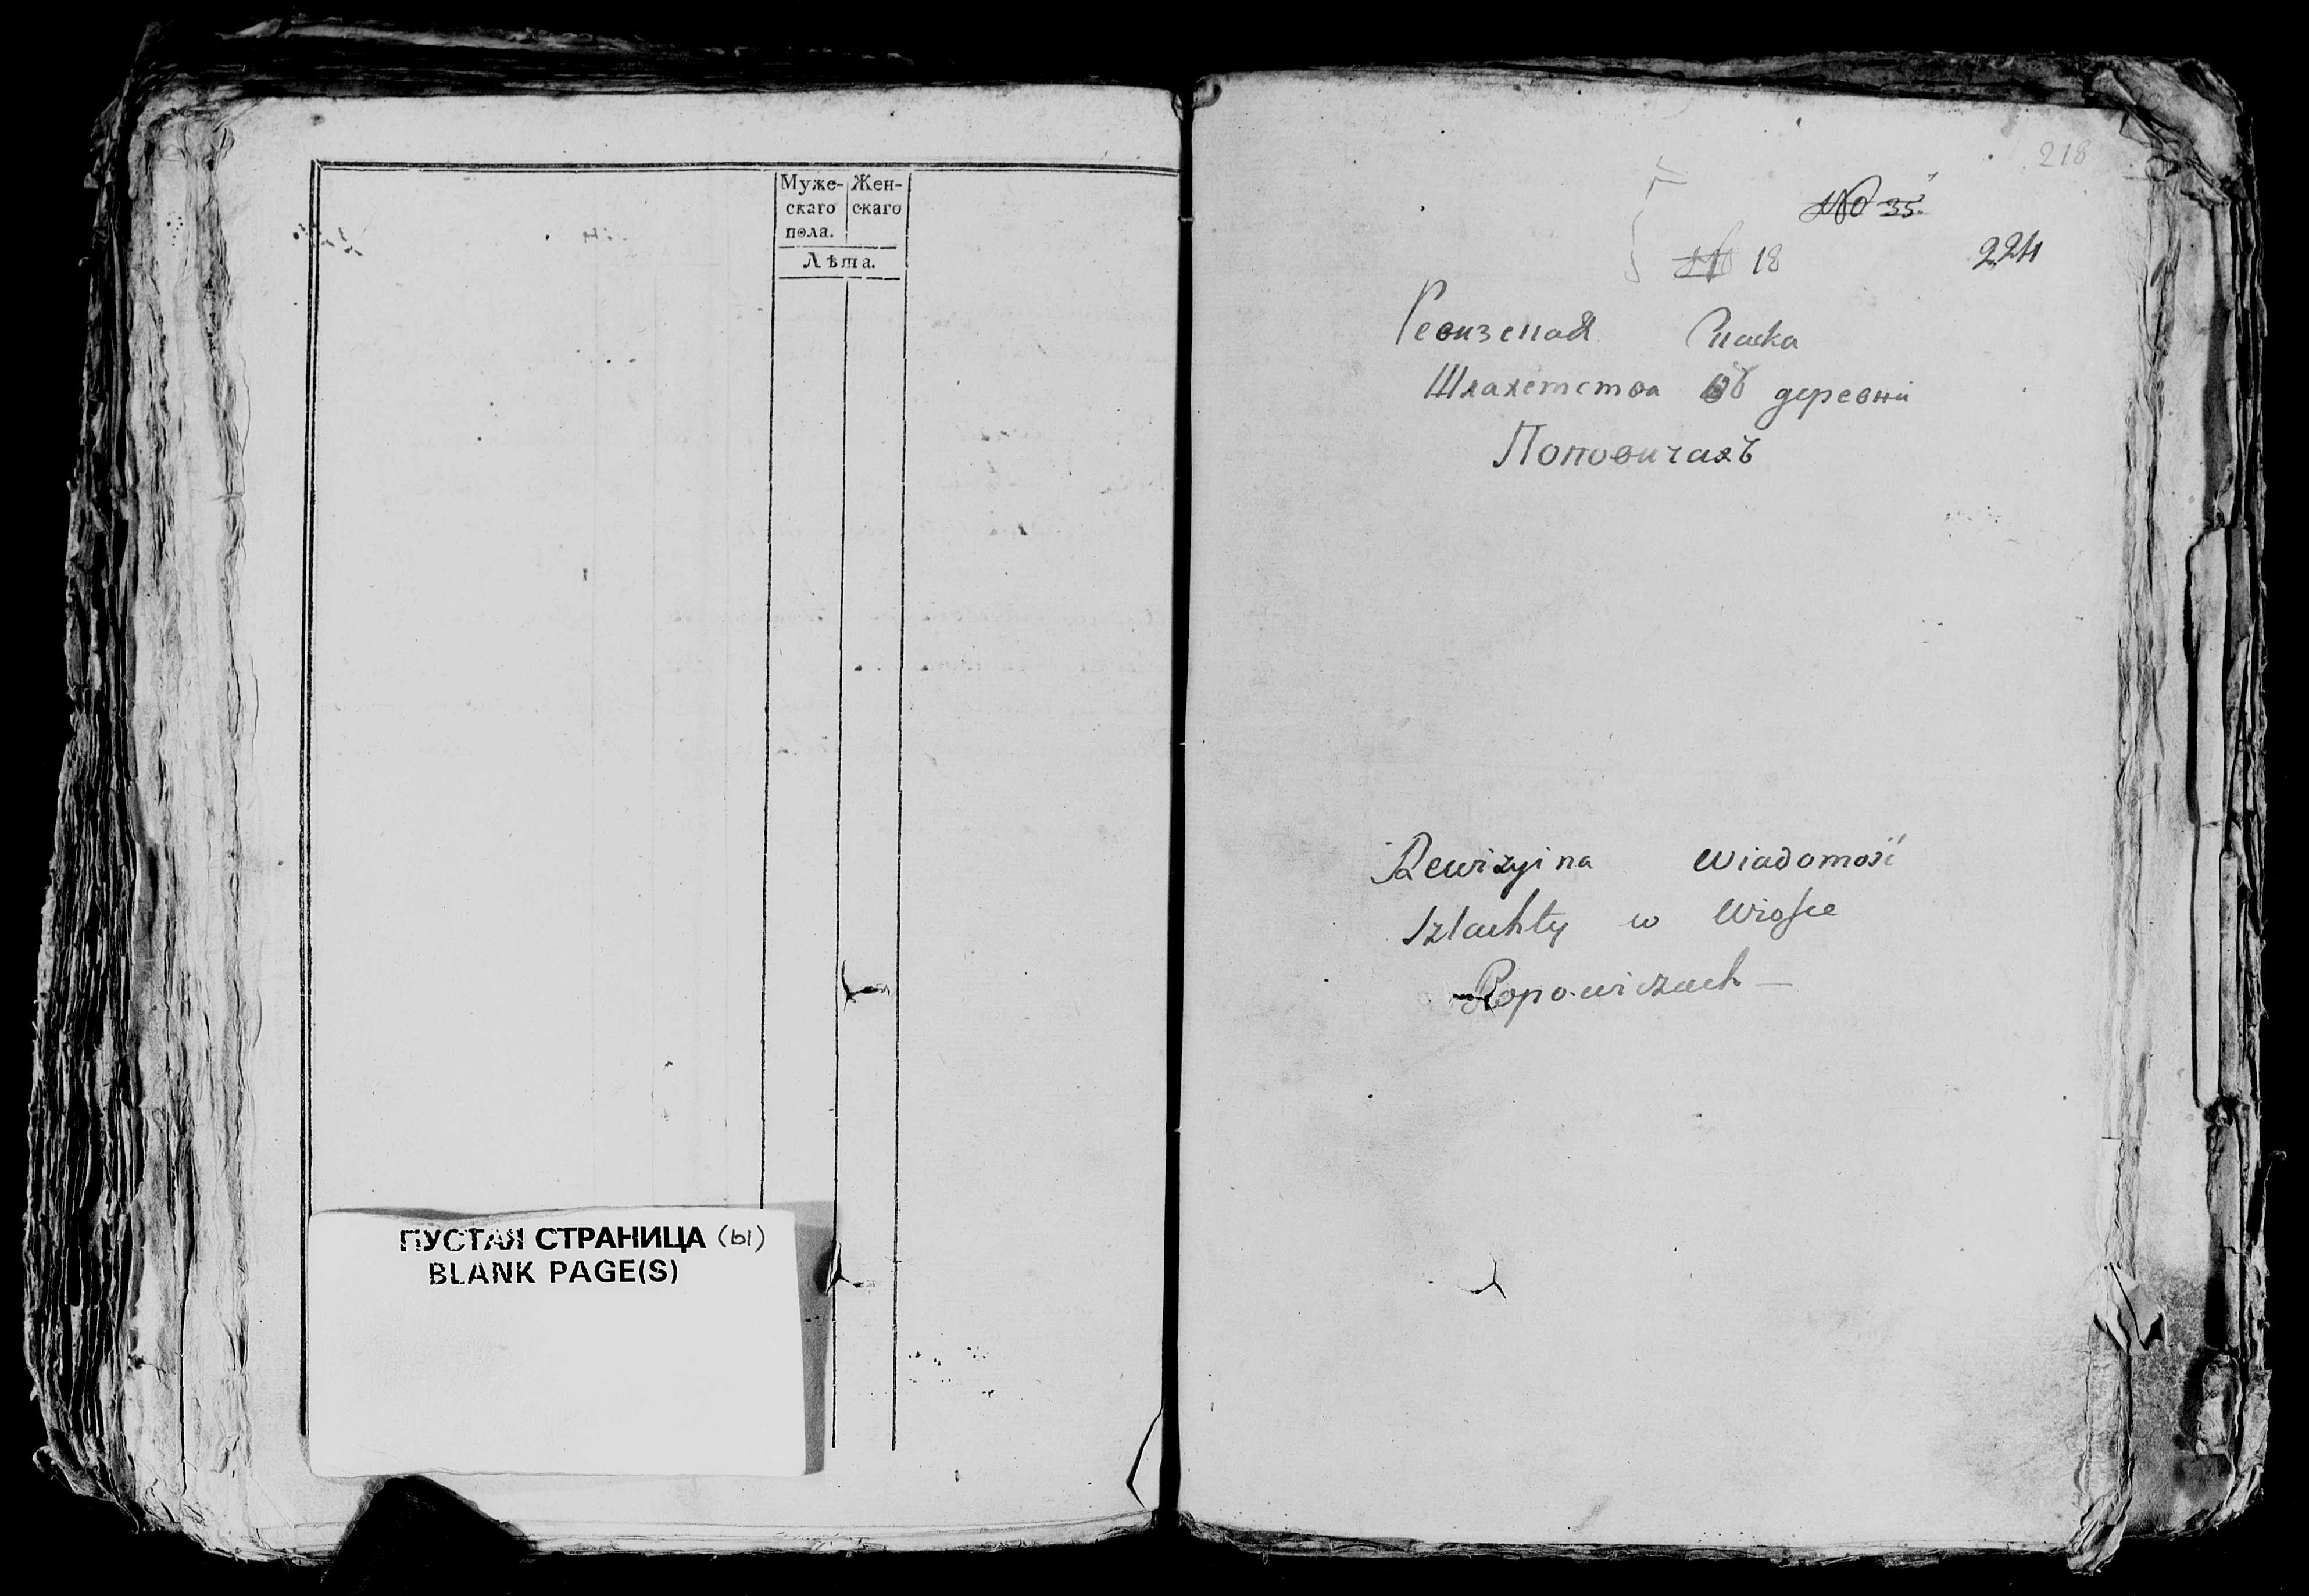 Муже- Жен-
скаго скаго
пола.
Лѣта.
ПУСТАЯ СТРАНИЦА (ы)
BLANK PAGE(S)
218
No 35
No 18 224
Ревизская Сказка
Шляхетства въ деревни
Поповичахъ
Rewizyina Wiadomość
Szlachty w Wiosce
Popowiczach